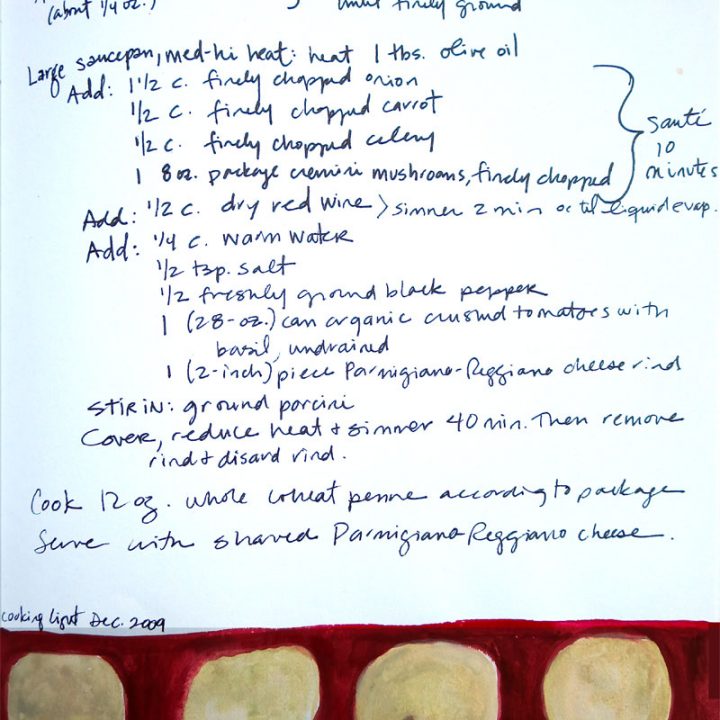 (about 1/4 oz.) until finely ground
Large saucepan, med-hi heat: heat 1 tbs. olive oil
Add: 1 1/2 c. finely chopped onion
1/2 c. finely chopped carrot
1/2 c. finely chopped celery
1 8 oz. package cremini mushrooms, finely chopped
sauté
10
minutes
Add: 1/2 c. dry red wine > simmer 2 min or til liquid evap.
Add: 1/4 c. warm water
1/2 tsp. salt
1/2 freshly ground black pepper
1 (28-oz.) can organic crushed tomatoes with
basil, undrained
1 (2-inch) piece Parmigiano-Reggiano cheese rind
STIR IN: ground porcini
Cover, reduce heat + simmer 40 min. Then remove
rind + disard rind.
Cook 12 oz. whole wheat penne according to package
Serve with shaved Parmigiano-Reggiano cheese.
cooking light Dec. 2009